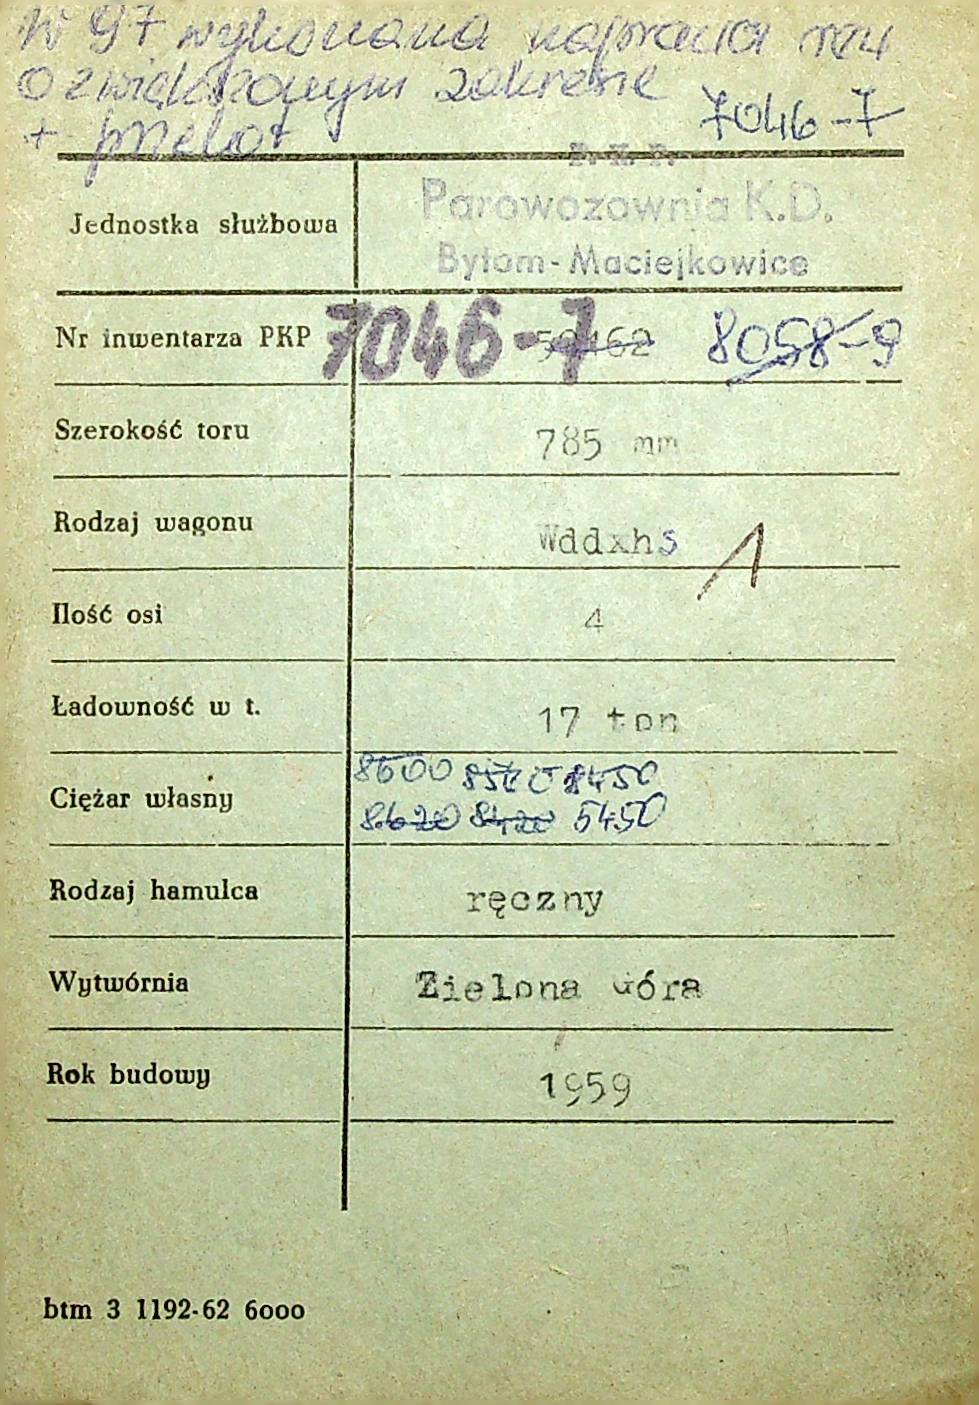 W 97 wykonana naprawa
o zwiększonym zakresie
7046-7
P. K. P.
Parowozownia K.D.
Bytom-Maciejkowice
Jednostka służbowa
Nr inwentarza PKP 7046-7 8058-9
Szerokość toru 785 mm
Rodzaj wagonu Wddxhs
Ilość osi 4
Ładowność w t. 17 ton
8600 8450
Ciężar własny
8620 8420 5450
Rodzaj hamulca ręczny
Wytwórnia Zielona Góra
Rok budowy 1959
btm 3 1192-62 6000